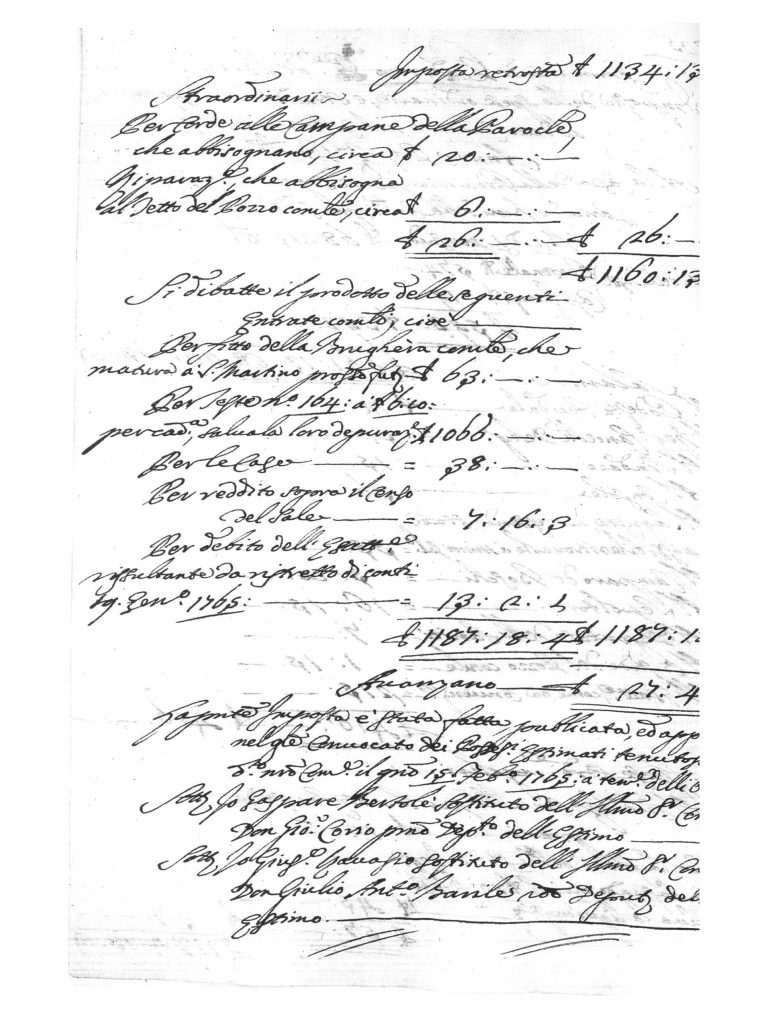 Imposta retrosta ₤ 1134:13
Straordinarii
Per Corde alle Campane della Paroc.le,
che abbisognano, circa ₤ 20:—:—
Riparaz.e, che abbisogna
al Tetto del Pozzo com.le, circa ₤ 6:—:—
₤ 26:—:— ₤ 26:—
₤ 1160:13
Si dibatte il prodotto delle seguenti
Entrate com.li, cioè
Per fitto della Brughera com.le, che
matura à S. Martino pross.o fut.o ₤ 63:—:—
Per Teste n.o 164: a ₤ 6:10:
per cad.a, salva la loro depuraz.e ₤ 1066:—:—
Per le Case — = 38:—:—
Per reddito sopra il Censo
del Sale — = 7:16:3
Per debito dell' Esatt.e
risultante da ristretto di conti
19. Gen.o 1765: — = 13:2:1
₤ 1187:18:4 ₤ 1187:1
Avanzano — ₤ 27:4
La pnte Imposta è stata fatta, publicata, ed app
nel gle Convocato dei Possess.i Estimati tenutosi
nro Com.e il gno 15. Feb.o 1765: a ten.e delli
Sott. Io Gaspare Bertolè Sostituto dell' Illmo S.r Con
Don Gio. Corio pmo Dep.to dell' Estimo
Sott. Io Gius.e Navasio Sostituto dell' Illmo S.r Con
Don Giulio Ant.o Barile Deput.o del
Estimo.